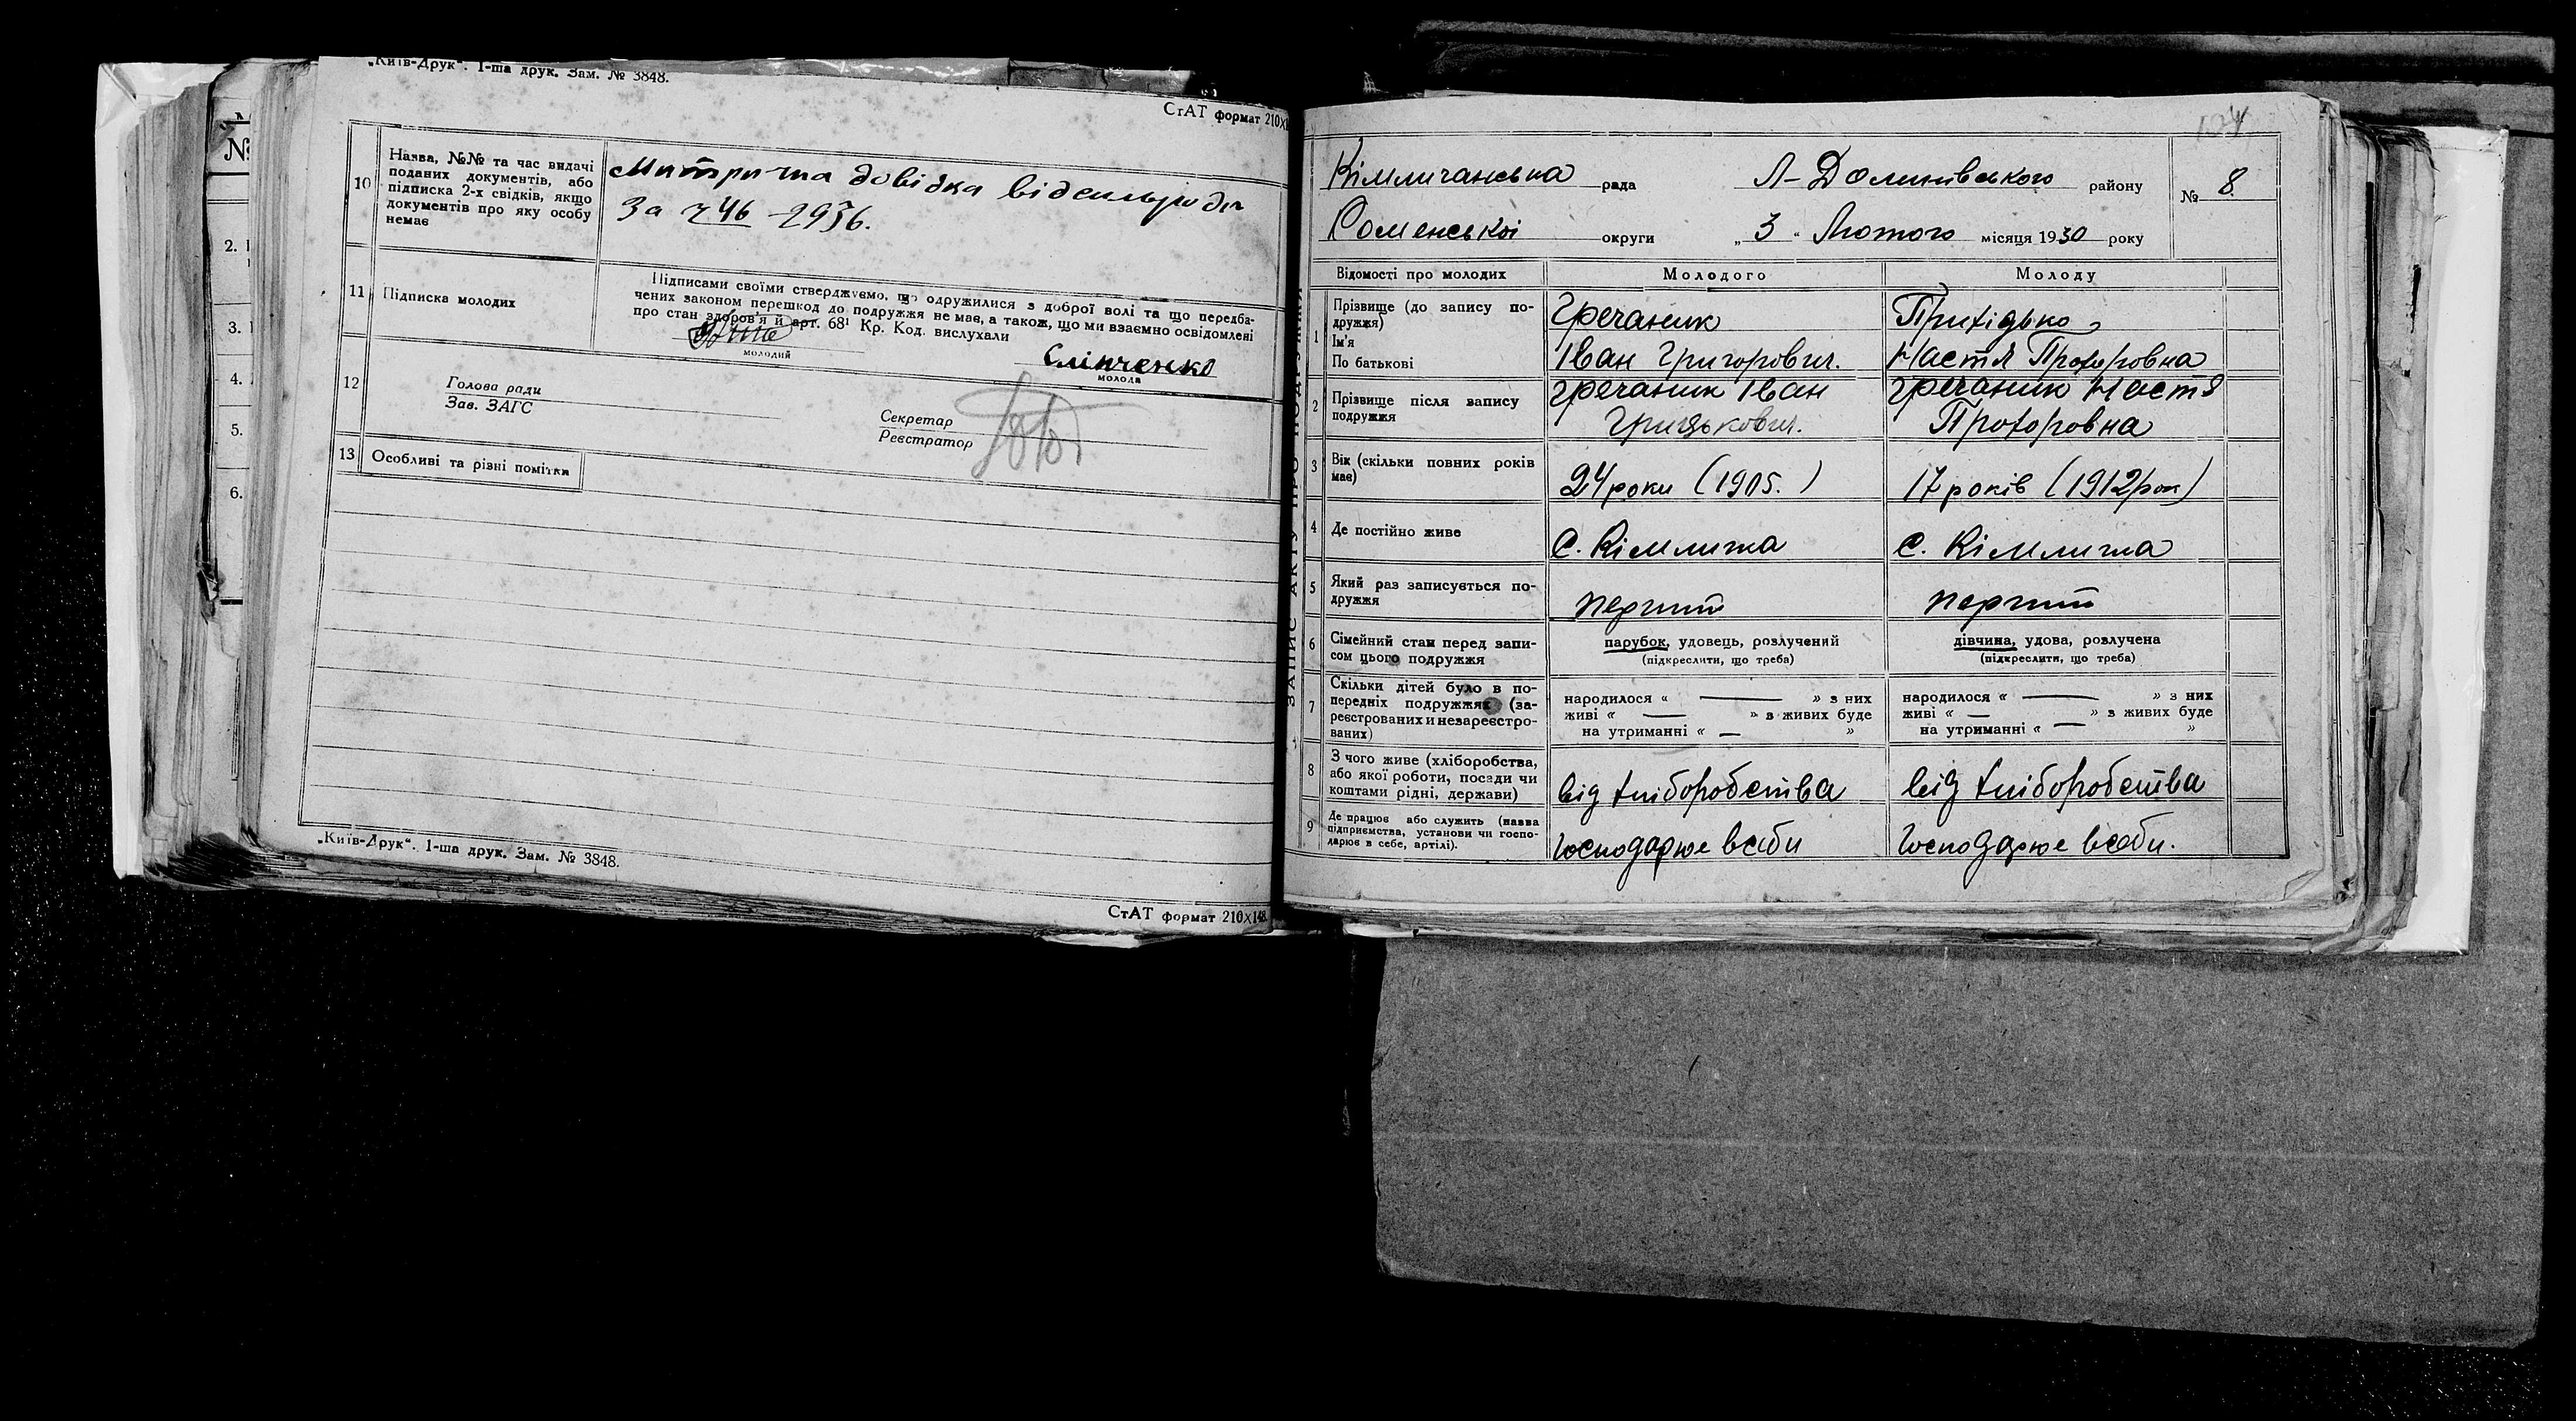 „Київ-Друк“. 1-ша друк. Зам. № 3848.
СтАТ формат 210Х1
№
2.
3.
4.
5.
6.
10
Назва, №№ та час видачі
поданих документів, або
підписка 2-х свідків, якщо
документів про яку особу
немає
Митрична довідка від сильради
За ч 46
11
Підписка молодих
Підписами своїми стверджуємо, що одружилися з доброї волі та що передба-
чених законом перешкод до подружжя не має, а також, що ми взаємно освідомлені
про стан здоров'я й арт. 68¹ Кр. Код. вислухали
молодий
Слінченко
молода
12
Голова ради
Зав. ЗАГС
Секретар
Реєстратор
13
Особливі та різні помітки
„Київ-Друк“. 1-ша друк. Зам. № 3848.
СтАТ формат 210Х148.
ЗАПИС АКТУ ПРО ПОДРУЖЖЯ
Кімличанська рада Л-Долинівського району
№ 8.
Роменської округи „ 3 “ Лютого місяця 1930 року
Відомості про молодих Молодого Молоду
1
Прізвище (до запису по-
дружжя)
Ім'я
По батькові
Гречаник
Іван Григорович.
Прихідько
Настя Прохоровна
2
Прізвище після запису
подружжя
Гречаник Іван
Грицькович.
Гречаник Настя
Прохоровна
3
Вік (скільки повних років
має)
24 роки (1905.)
17 років (1912 рок)
4
Де постійно живе
С. Кімличка
С. Кімличка
5
Який раз записується по-
дружжя
перший
перший
6
Сімейний стан перед запи-
сом цього подружжя
парубок, удовець, розлучений
(підкреслити, що треба)
дівчина, удова, розлучена
(підкреслити, що треба)
7
Скільки дітей було в по-
передніх подружжях (за-
реєстрованих и незареєстро-
ваних)
народилося « — » з них
живі « — » з живих буде
на утриманні « — »
народилося « — » з них
живі « — » з живих буде
на утриманні « — »
8
З чого живе (хліборобства,
або якої роботи, посади чи
коштами рідні, держави)
від хліборобства
від хліборобства
9
Де працює або служить (назва
підприємства, установи чи госпо-
дарює в себе, артілі).
господарює всеби
господарює всеби.